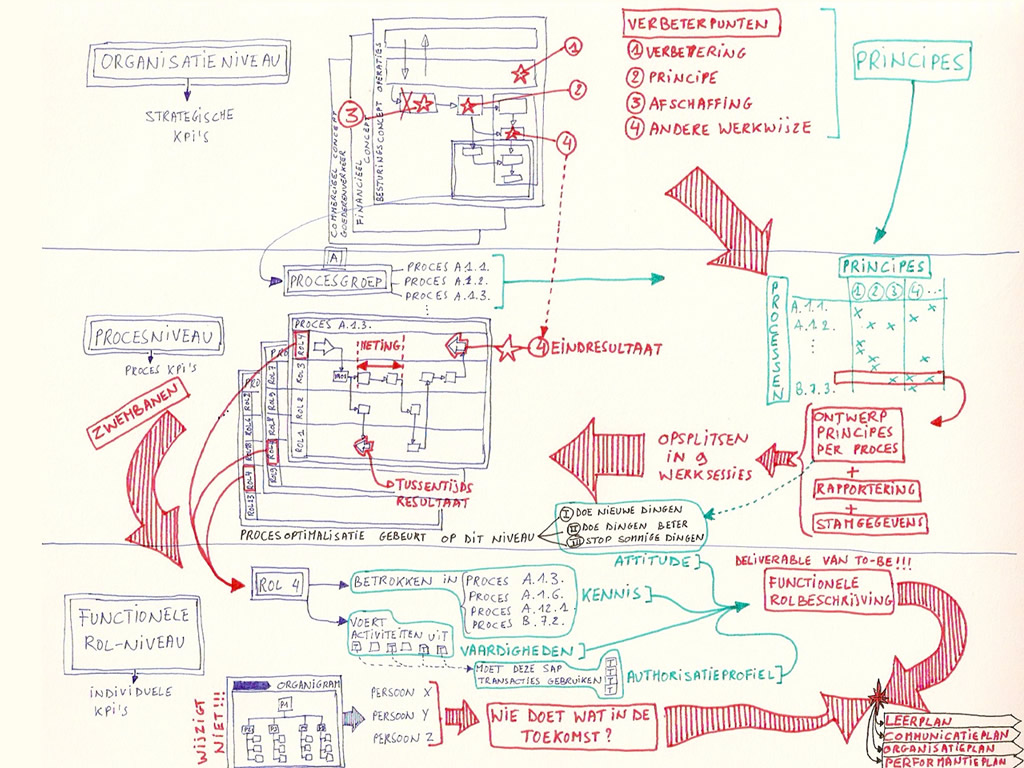 ORGANISATIENIVEAU
STRATEGISCHE
KPI'S
COMMERCIEEL CONCEPT
GOEDERENVERKEER
FINANCIEEL
CONCEPT
BESTURINGSCONCEPT OPERATIES
1
2
3
4
VERBETERPUNTEN
1 VERBETERING
2 PRINCIPE
3 AFSCHAFFING
4 ANDERE WERKWIJZE
PRINCIPES
A
PROCESGROEP
PROCES A.1.1.
PROCES A.1.2.
PROCES A.1.3.
PRINCIPES
PROCESSEN
1 2 3 4 ...
A.1.1.
A.1.2.
B.7.3.
PROCESNIVEAU
PROCES KPI'S
PROCES A.1.3.
ROL 4
ROL 3
ROL 2
ROL 1
METING
4 EINDRESULTAAT
TUSSENTIJDS
RESULTAAT
ZWEMBANEN
OPSPLITSEN
IN 9
WERKSESSIES
ONTWERP
PRINCIPES
PER PROCES
+
RAPPORTERING
+
STAMGEGEVENS
PROCESOPTIMALISATIE GEBEURT OP DIT NIVEAU
I DOE NIEUWE DINGEN
II DOE DINGEN BETER
III STOP SOMMIGE DINGEN
FUNCTIONELE
ROL-NIVEAU
INDIVIDUELE
KPI'S
ROL 4
BETROKKEN IN
PROCES A.1.3.
PROCES A.1.6.
PROCES A.12.1.
PROCES B.7.2.
VOERT
ACTIVITEITEN UIT
MOET DEZE SAP
TRANSACTIES GEBRUIKEN
ATTITUDE
KENNIS
VAARDIGHEDEN
AUTHORISATIEPROFIEL
DELIVERABLE VAN TO-BE!!!
FUNCTIONELE
ROLBESCHRIJVING
WIJZIGT
NIET!!!
ORGANIGRAM
PERSOON X
PERSOON Y
PERSOON Z
WIE DOET WAT IN DE
TOEKOMST?
LEERPLAN
COMMUNICATIEPLAN
ORGANISATIEPLAN
PERFORMANTIEPLAN